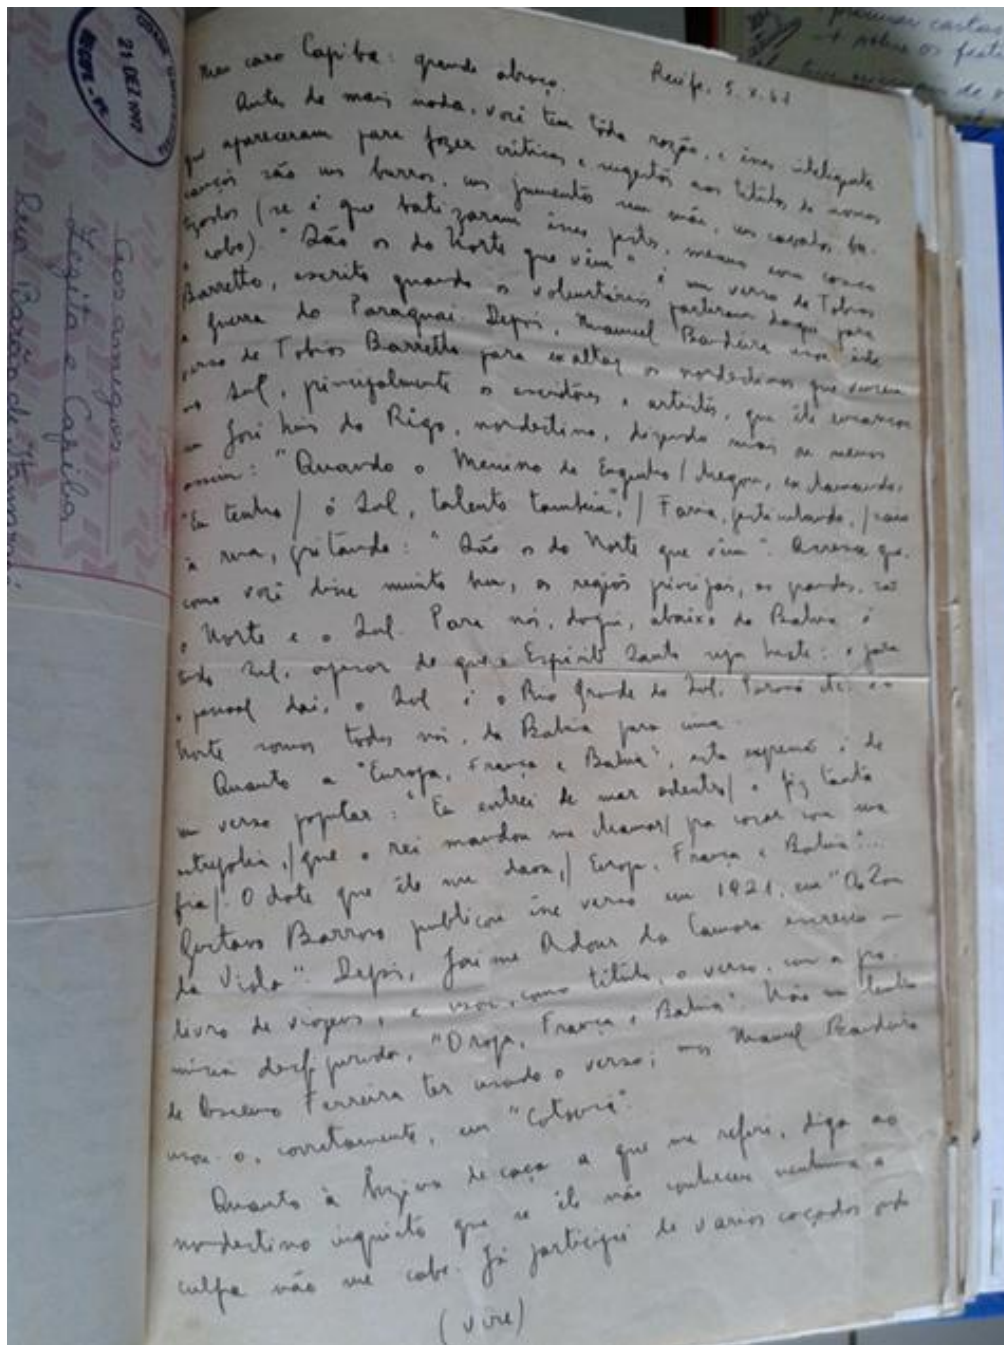 Recife, 5.X.67
Meu caro Capiba: grande abraço.
Antes de mais nada, você tem tôda razão, e êsses inteligentes
que apareceram para fazer críticas e sugestões aos títulos de nossas
canções são uns burros, uns jumentos sem mãe, uns cavalos ba-
tizados (se é que batizaram êsses pestes, mesmo com
o cabo). "São os do Norte que vêm" é um verso de Tobias
Barretto, escrito quando os voluntários partiram daqui para
a guerra do Paraguai. Depois, Manuel Bandeira usou êste
verso de Tobias Barretto para exaltar os nordestinos que
no Sul, principalmente os escritores e artistas, que êle
em José Lins do Rêgo, nordestino, dizendo mais ou menos
assim: "Quando o Menino de Engenho / chegou, exclamando,
"Eu tenho / ó Sul, talento também", / Faria, gesticulando, / saiu
à rua, gritando: "São os do Norte que vêm". Acresce que,
como você disse muito bem, as regiões principais, as grandes, são
o Norte e o Sul. Para nós, daqui, abaixo da Bahia é
tudo Sul, apesar de que o Espírito Santo seja Leste: e para
o pessoal daí, o Sul é o Rio Grande do Sul, Paraná etc. e o
Norte somos todos nós, da Bahia para cima.
Quanto a "Europa, França e Bahia", esta expressão é de
um verso popular: "Eu entrei de mar adentro / e fiz tanta
estrepolia, / que o rei mandou me chamar / pra casar com sua
fia /. O dote que êle me dava, / Europa, França e Bahia"...
Gustavo Barroso publicou êsse verso em 1921, em "Ao Som
da Viola". Depois, Jaime Adour da Camara escreveu um
livro de viagens, e usou, como título, o verso, com a pro-
núncia desfigurada, "Oropa, França e Bahia". Não me lembro
de Ascenso Ferreira ter usado o verso; mas Manuel Bandeira
usou-o, corretamente, em "Cotovia".
Quanto à buzina de caça a que me refiro, diga ao
nordestino inquieto que se êle não conheceu nenhuma a
culpa não me cabe. Já participei de várias caçadas onde
(vire)
21 DEZ 1967
RECIFE - PE
Aos amigos
Zezita e Capiba
Rua Barão de Itamaracá
cartas
sobre os